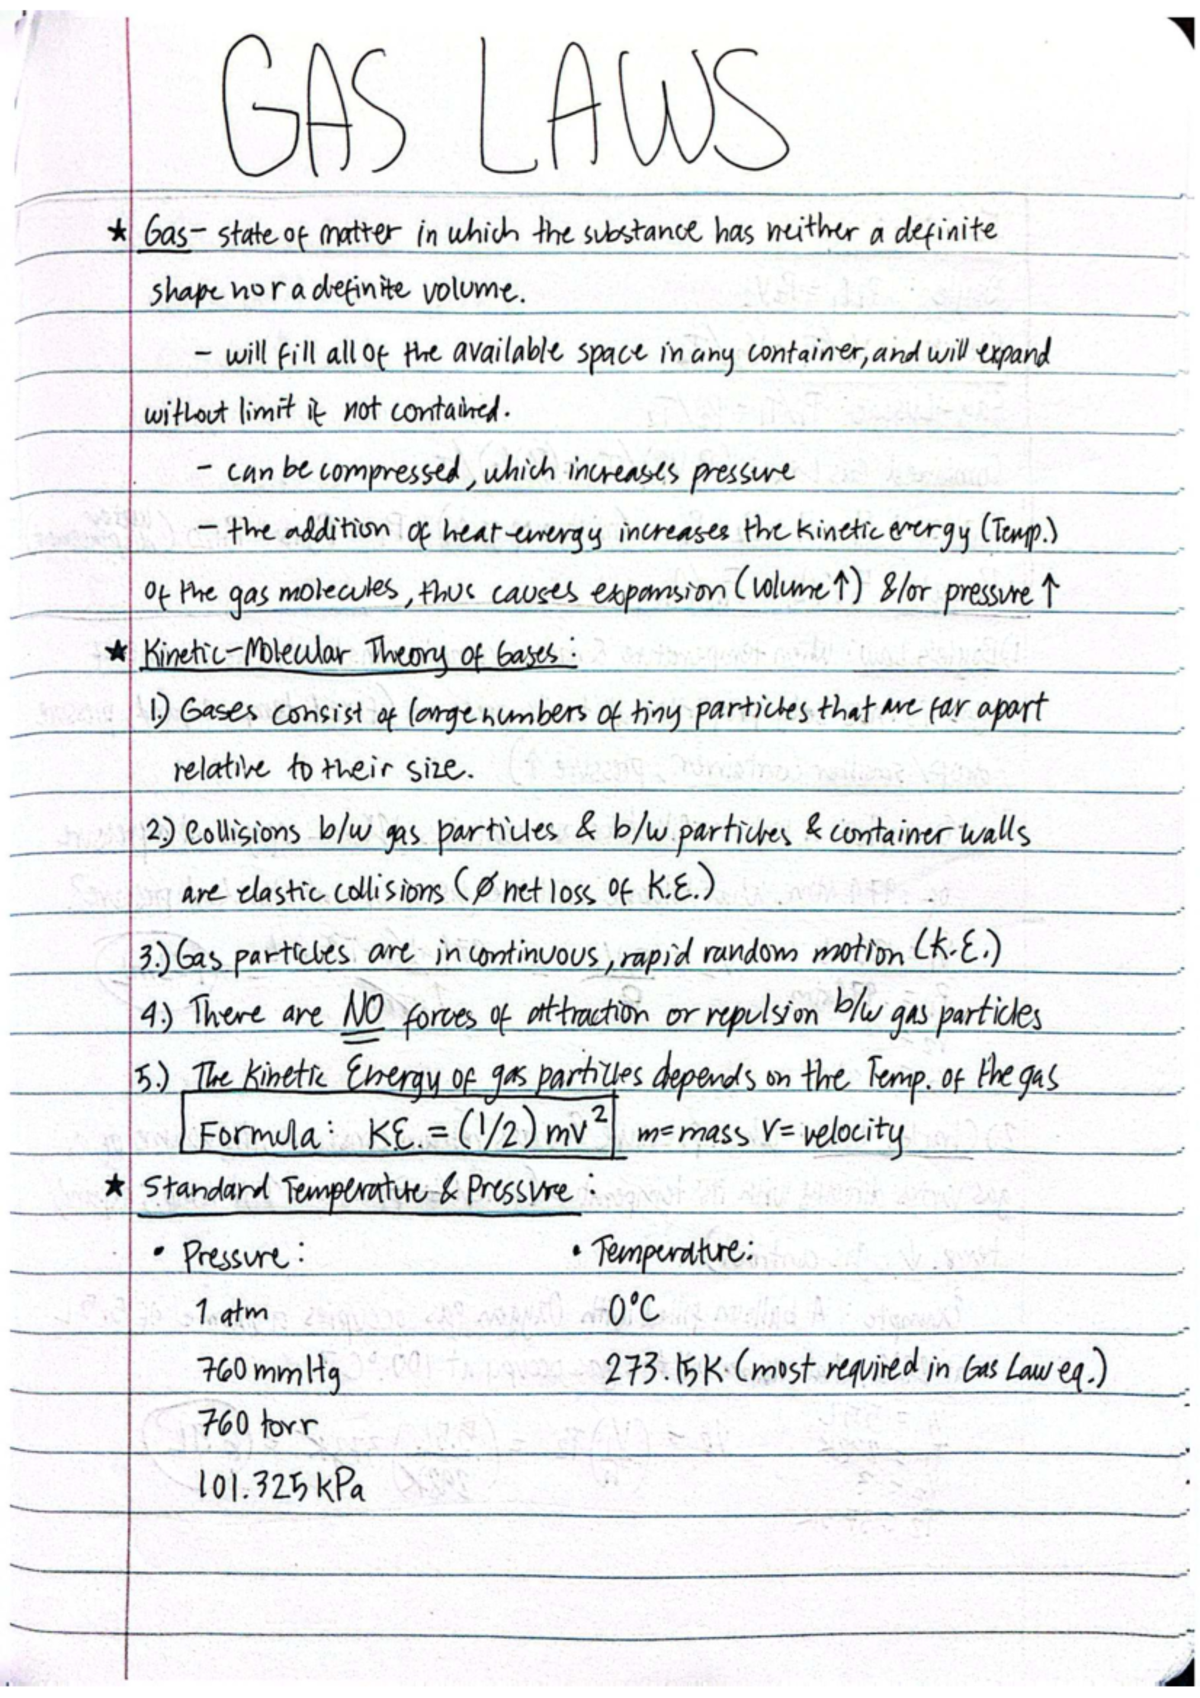 GAS LAWS
★ Gas - state of matter in which the substance has neither a definite
shape nor a definite volume.
- will fill all of the available space in any container, and will expand
without limit if not contained.
- can be compressed, which increases pressure
- the addition of heat energy increases the kinetic energy (Temp.)
of the gas molecules, thus causes expansion (volume ↑) &/or pressure ↑
★ Kinetic-Molecular Theory of Gases:
1.) Gases consist of large numbers of tiny particles that are far apart
relative to their size.
2.) Collisions b/w gas particles & b/w particles & container walls
are elastic collisions (Ø net loss of K.E.)
3.) Gas particles are in continuous, rapid random motion (K.E.)
4.) There are NO forces of attraction or repulsion b/w gas particles
5.) The Kinetic Energy of gas particles depends on the Temp. of the gas
Formula: KE. = (1/2) mv² m=mass V=velocity
★ Standard Temperature & Pressure:
• Pressure: • Temperature:
1 atm 0°C
760 mmHg 273.15K (most required in Gas Law eq.)
760 torr
101.325 kPa